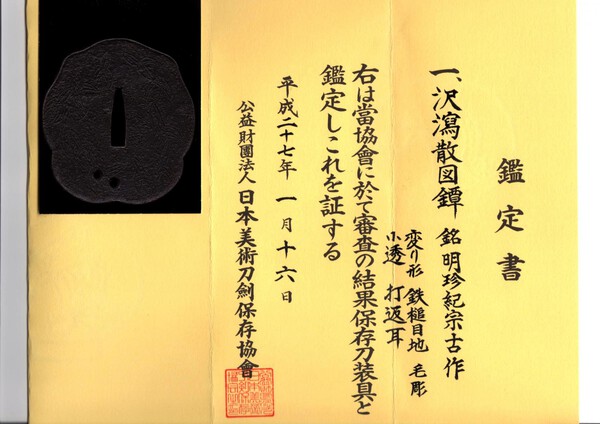 鑑定書
一、沢瀉散図鐔 銘 明珍紀宗古作
変り形 鉄槌目地 毛彫
小透 打返耳
右は當協會に於て審査の結果保存刀装具と
鑑定しこれを証する
平成二十七年 一月十六日
公益財團法人 日本美術刀劍保存協會